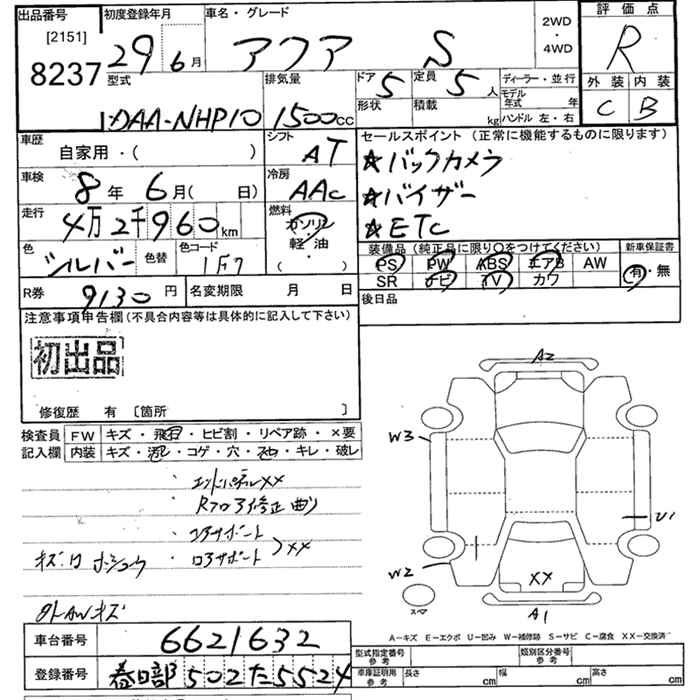 出品番号 初度登録年月 車名・グレード 2WD・4WD 評価点
[2151]
8237 29年6月 アクア S R
外装 内装
C B
型式 排気量 ドア 5 定員 5人 ディーラー・並行
形状 積載 kg モデル年式 年
DAA-NHP10 1500cc ハンドル 左・右
車歴 シフト セールスポイント (正常に機能するものに限ります)
自家用・( ) AT ☆バックカメラ
車検 冷房
8年 6月( 日) AAC ☆バイザー
走行 燃料
4万2千960km ガソリン・軽油・( ) ☆ETC
色 色替 色コード 装備品 (純正品に限り○をつけてください) 新車保証書
シルバー 1F7 PS PW ABS エアB AW 有・無
SR ナビ TV カワ
R券 9130円 名変期限 月 日 後日品
注意事項申告欄(不具合内容等は具体的に記入して下さい)
初出品
修復歴 有 [箇所 ]
検査員 FW キズ・飛石・ヒビ割・リペア跡・×要
記入欄 内装 キズ・汚レ・コゲ・穴・スレ・キレ・破レ
・エンドパネルXX
Rフロア修正 曲り
・コアサポート
・ロアサポート >XX
外AWキズ
A2
W3
U1
W2
XX
スペア
A1
A-キズ E-エクボ U-凹み W-補修跡 S-サビ C-腐食 XX-交換済
車台番号 6621632
登録番号 春日部 502 た 5524
型式指定番号 参考 類別区分番号 参考
車庫証明用 参考 長さ cm 幅 cm 高さ cm